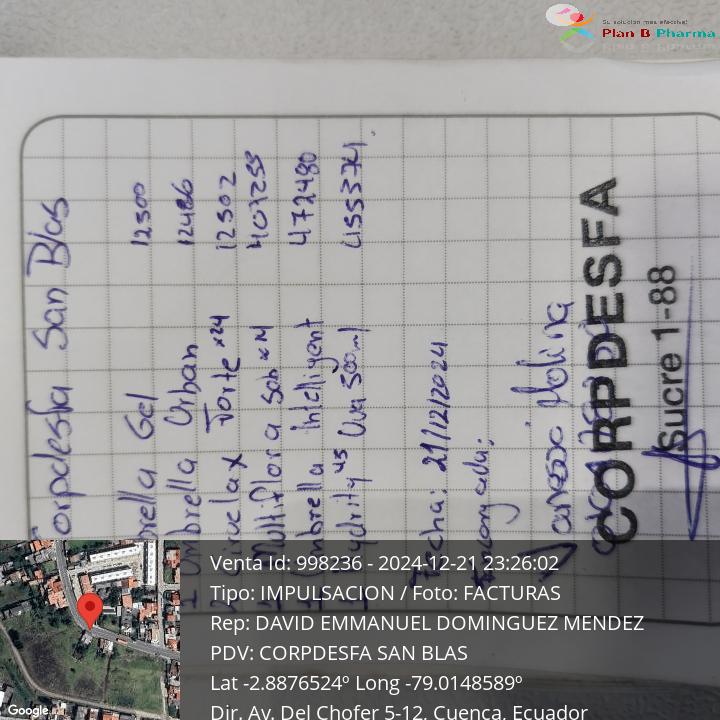 Su solucion mas efectiva!
Plan B Pharma
Corpdesfa San Blas
Gel 12500
1 Umbrella Urban 12486
Sirvelax Forte x24 12502
Multiflora Sob x14 407255
Umbrella Intelligent 472480
45 Uva 500ml
Fecha: 21/12/2024
Encargada:
Molina
CORPDESFA
Sucre 1-88
Google
Venta Id: 998236 - 2024-12-21 23:26:02
Tipo: IMPULSACION / Foto: FACTURAS
Rep: DAVID EMMANUEL DOMINGUEZ MENDEZ
PDV: CORPDESFA SAN BLAS
Lat -2.8876524º Long -79.0148589º
Dir. Av. Del Chofer 5-12, Cuenca, Ecuador